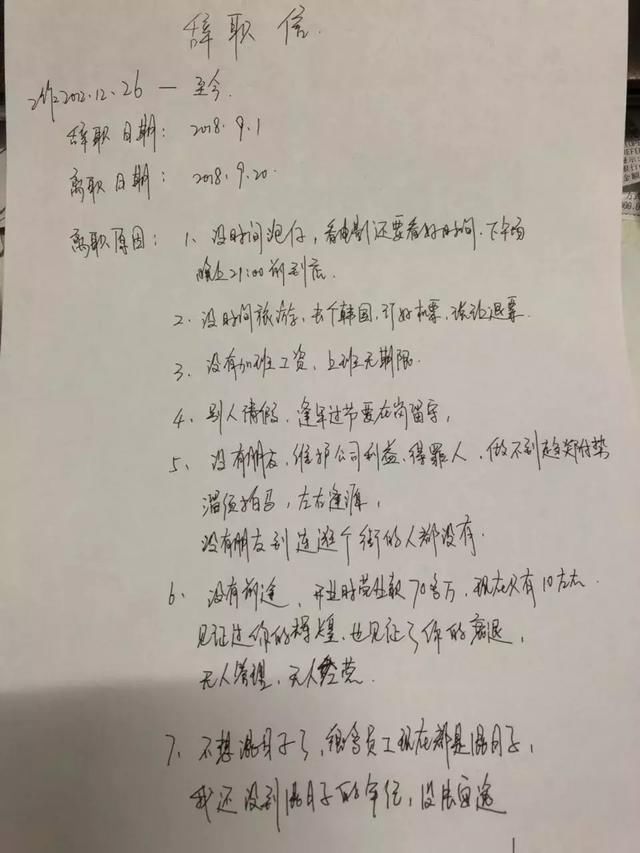 辞职信.
工作2012.12.26 — 至今.
辞职日期: 2018.9.1
离职日期: 2018.9.20.
离职原因: 1、没时间泡仔,看电影还要看好时间.下午场
晚上21:00前到店.
2、没时间旅游,去个韩国,订好机票,被迫退票.
3、没有加班工资,上班无期限.
4、别人请假,逢年过节要在岗留守,
5、没有朋友,维护公司利益、得罪人,做不到趋炎附势
溜须拍马,左右逢源,
没有朋友到连逛个街的人都没有.
6、没有前途、开业时营业额70多万,现在只有10万左右.
见证过你的辉煌,也见证了你的衰退,
无人管理,无人经营.
7、不想混日子了,很多员工现在都是混日子,
我还没到混日子的年纪,没法面对